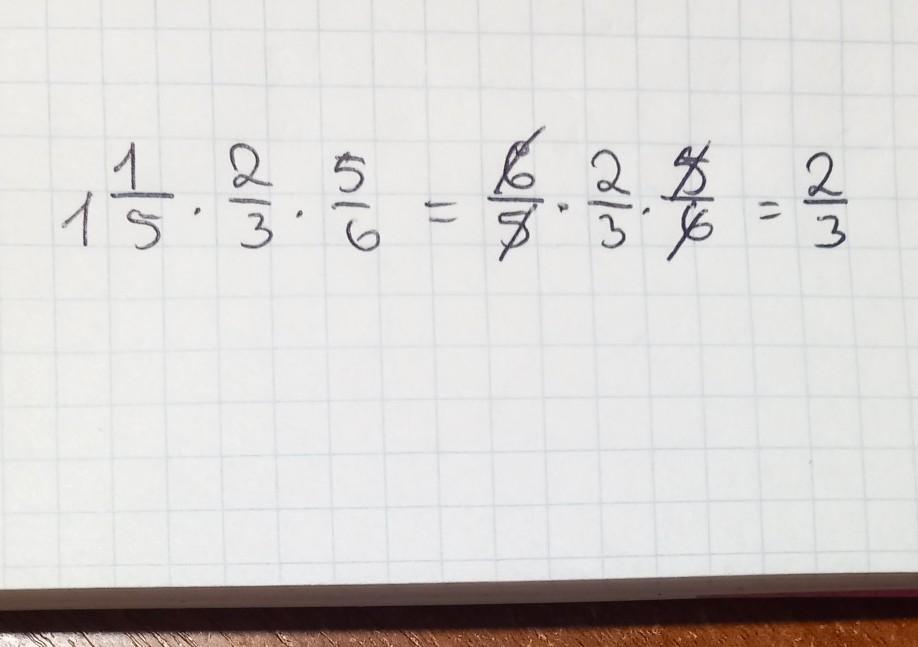 1 1/5 · 2/3 · 5/6 = 6/5 · 2/3 · 5/6 = 2/3